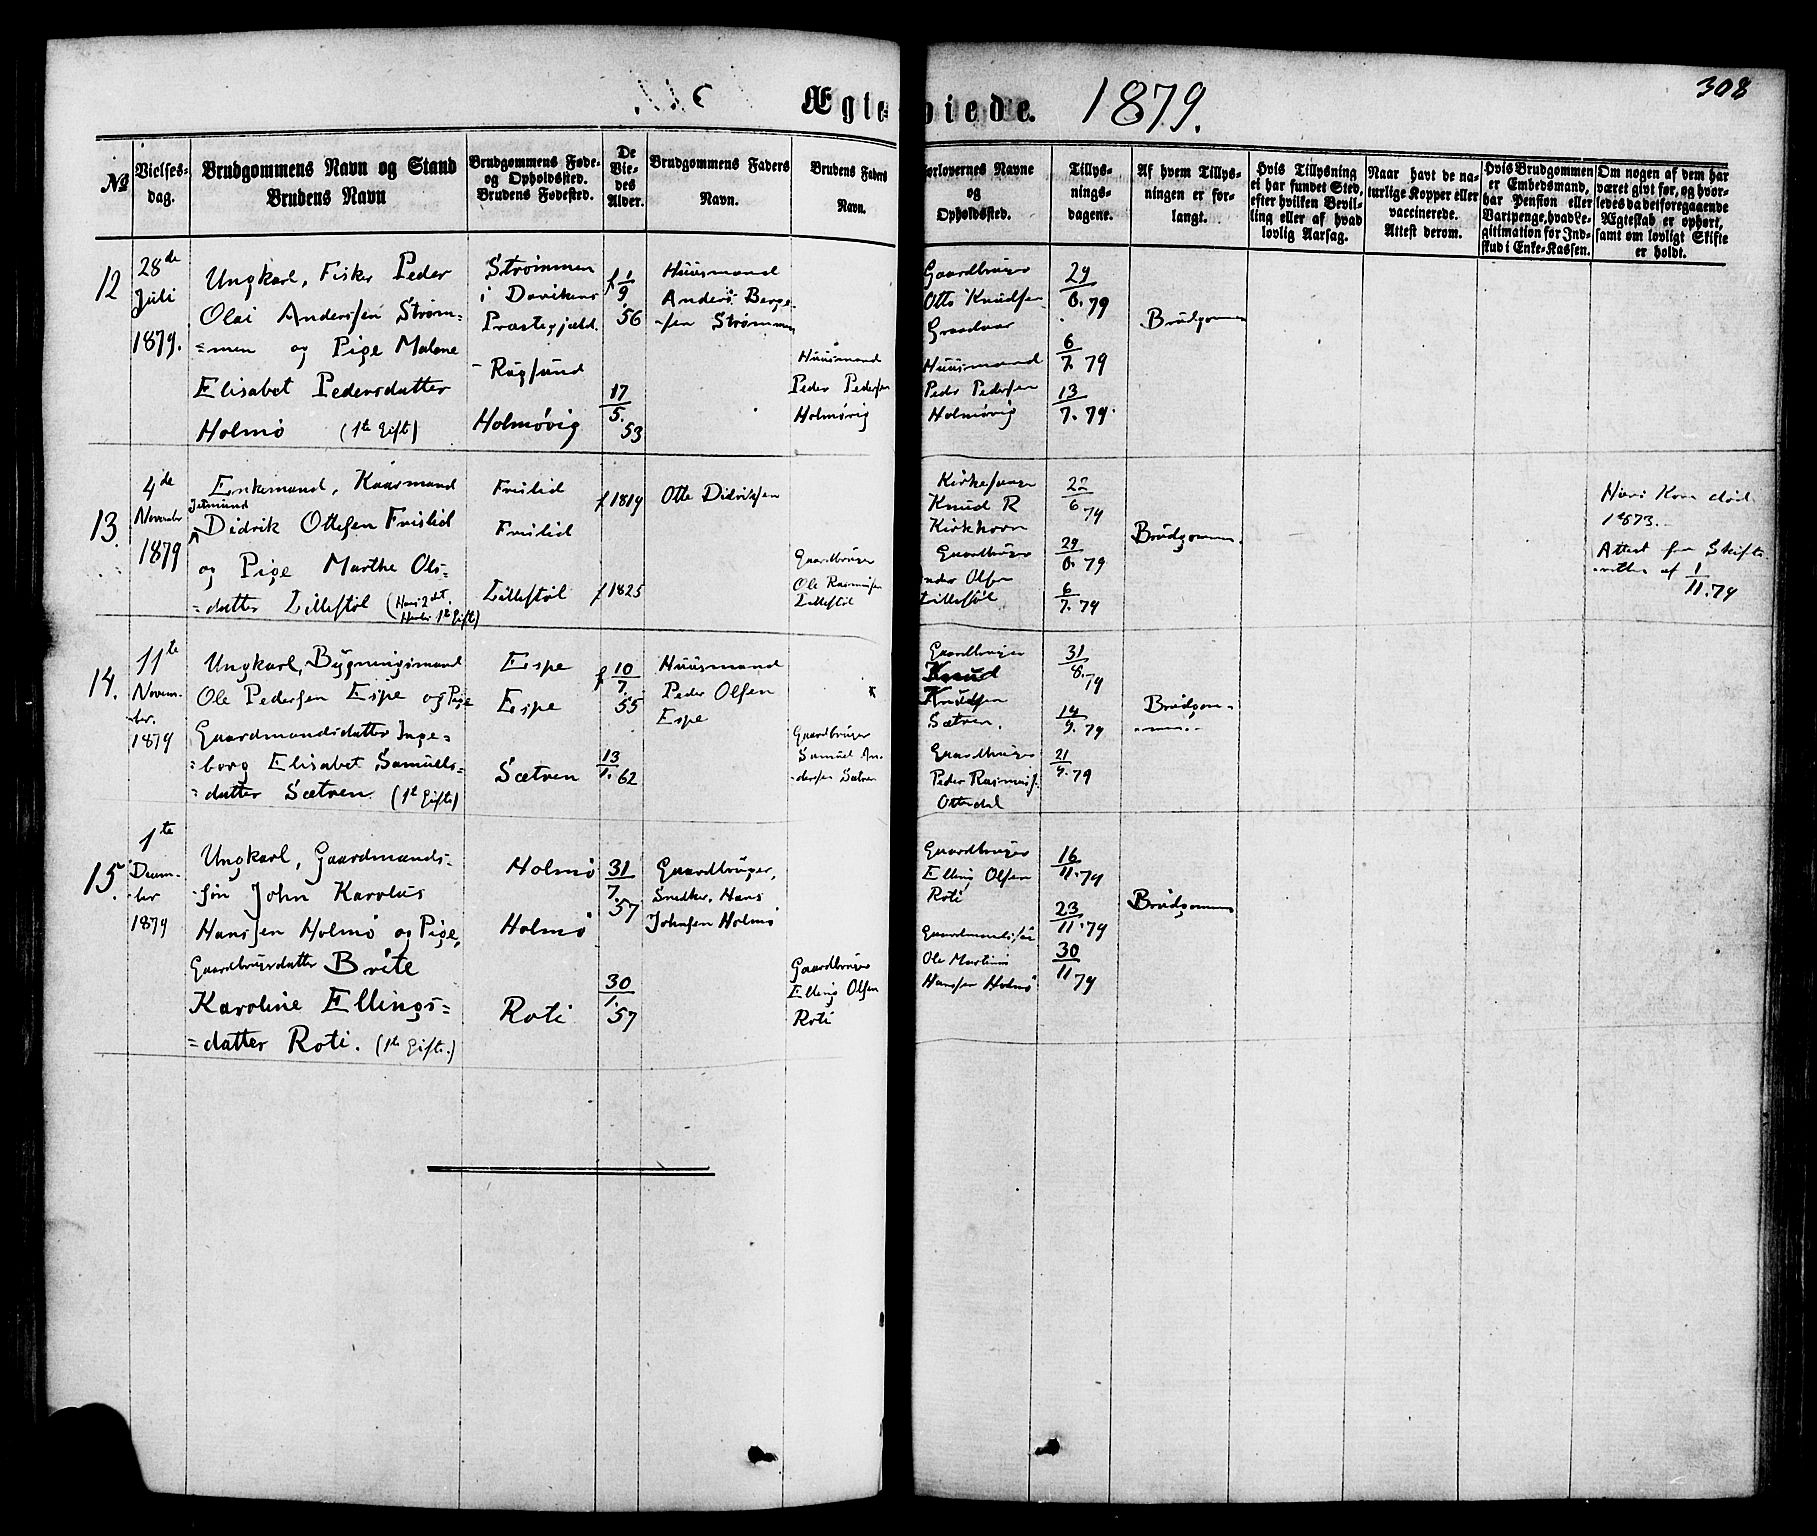 Ægteviede. 1879.
308
No
Vielses-
dag.
Brudgommens Navn og Stand
Brudens Navn
Brudgommens Føde-
og Opholdssted.
Brudens Fødested.
De
Vie-
des
Alder.
Brudgommens Faders
Navn.
Brudens Faders
Navn.
Forlovernes Navne
og
Opholdssted.
Tillys-
nings-
dagene.
Af hvem Tillys-
ningen er for-
langt.
Hvis Tillysning
ei har fundet Sted,
efter hvilken Bevil-
ling eller af hvad
lovlig Aarsag.
Naar havt de na-
turlige Kopper eller
vaccinerede.
Attest derom.
Hvis Brudgommen
er Embedsmand,
har Pension eller
Vartpenge, hvad Le-
gitimation for Ind-
skud i Enke-Kassen.
Om nogen af dem har
været givt før, og hvor-
ledes da det foregaaende
Ægteskab er ophørt,
samt om lovligt Skifte
er holdt.
12
28de
Juli
1879.
Ungkarl, Fisker Peder
Olai Anderssen Strøm=
=men og Pige Malene
Elisabet Pedersdatter
Holmø (1te Gift)
Strømmen
i Davikens
Præstegjæld.
- Rugsund
Holmøvig
f 1/9 56
17/5. 53
Huusmand
Anders Berge-
-sen Strømmen
Huusmand
Peder Pedersen
Holmøvig
Gaardbruger
Otto Knudsen
Huusmand
Peder Pedersen
Holmøvig
29/6. 79
6/7. 79
13/7. 79.
Brudgommen
13.
4de
November
1879
Enkemand, Kaarmand
Jetmund
Didrik Ottesen Frislid
og Pige Marthe Ols=
=datter Lillestøl (Hans 2det,
Hendes 1te Gifte)
Frislid
Frislid
Lillestøl
f 1819
f 1825
Otte Didriksen
Gaardbruger
Ole Rasmussen
Lillestøl
Kirkesanger
Knud R
Kirkhorn
Gaardbruger
Anders Olsen
Lillestøl
22/6 79
29/6. 79
6/7. 79
Brudgommen.
Hans Kone død
1873.-
Attest fra Skifte-
-retten af 1/11. 79
14.
11te
Novem-
-ber.
1879
Ungkarl, Bygningsmand
Ole Pedersen Espe og Pige
Gaardmandsdatter Inge=
=borg Elisabet Samuels=
=datter Sætren. (1te Gifte)
Espe
Espe
Sætren
f 10/7 55
13/1. 62
Huusmand
Peder Olsen
Espe
Gaardbruger
Samuel An-
-dersen Sætren
Gaardbruger
Knud
Knudsen
Sætren.
Gaardbruger
Peder Rasmuss.
Otterdal
31/8. 79
14/9. 79
21/9. 79
Brudgom-
-men.-
15.
1te
Decem-
-ber
1879
Ungkarl, Gaardmands=
-søn John Karolus
Hanssen Holmø og Pige,
Gaardbrugerdatter Brite
Karoline Ellings=
=datter Roti. (1te Gifte.)
Holmø
Holmø
Roti
31/7. 57
30/1. 57
Gaardbruger,
Snedker, Hans
Johnsen Holmø
Gaardbruger
Elling Olsen
Roti
Gaardbruger
Elling Olsen
Roti
Gaardmandssøn
Ole Martinus
Hanssen Holmø
16/11. 79
23/11. 79
30/11 79
Brudgommen